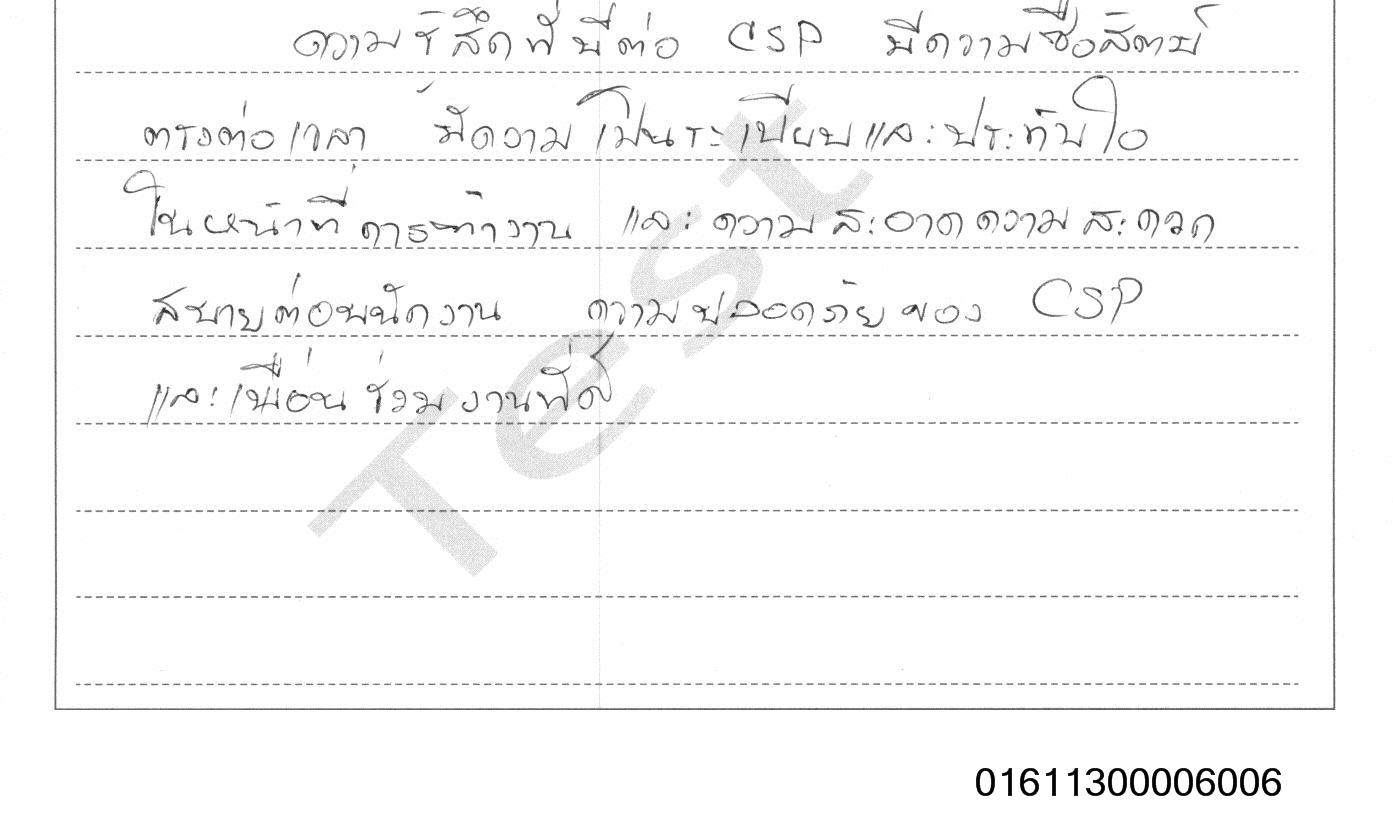 ความรู้สึกที่มีต่อ CSP มีความซื่อสัตย์
ตรงต่อเวลา มีความเป็นระเบียบและประทับใจ
ในหน้าที่การทำงาน และความสะอาดความสะดวก
สบายต่อพนักงาน ความปลอดภัยของ CSP
และเพื่อนร่วมงานที่ดี
Test
01611300006006